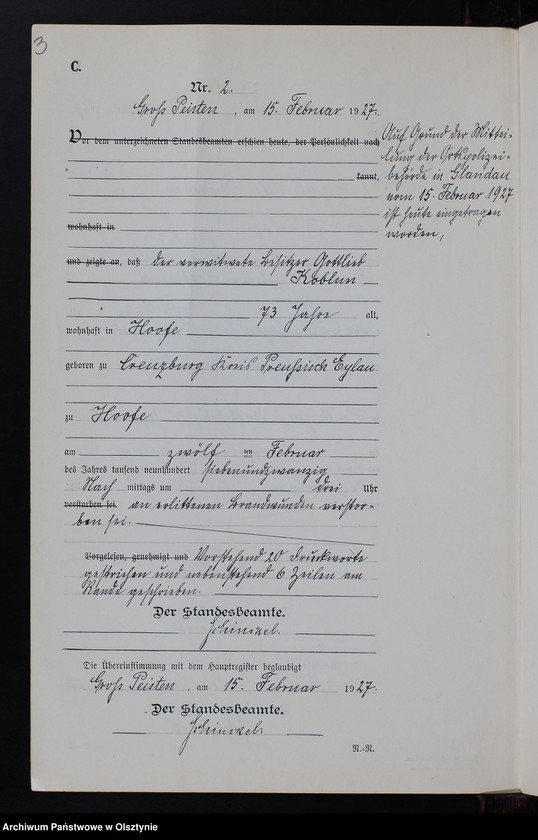 3
C.
Nr. 2.
Groß Peisten, am 15. Februar 1927.
Vor dem unterzeichneten Standesbeamten erschien heute, der Persönlichkeit nach
kannt,
wohnhaft in
und zeigte an, daß der verwitwete Besitzer Gottlieb
Koblun
73 Jahre alt,
wohnhaft in Hoofe
geboren zu Creuzburg Kreis Preußisch Eylau
zu Hoofe
am zwölf ten Februar
des Jahres tausend neunhundert siebenundzwanzig
Nach mittags um drei Uhr
verstorben sei. an erlittenen Brandwunden verstor-
ben sei.
Vorgelesen, genehmigt und Vorstehend 20 Druckworte
gestrichen und nebenstehend 6 Zeilen am
Rande geschrieben.
Der Standesbeamte.
Schinckel.
Die Übereinstimmung mit dem Hauptregister beglaubigt
Groß Peisten, am 15. Februar 1927.
Der Standesbeamte.
Schinckel.
N.-R.
Auf Grund der Mittei-
lung der Ortspolizei-
behörde in Glandau
vom 15. Februar 1927
ist heute eingetragen
worden,
Archiwum Państwowe w Olsztynie